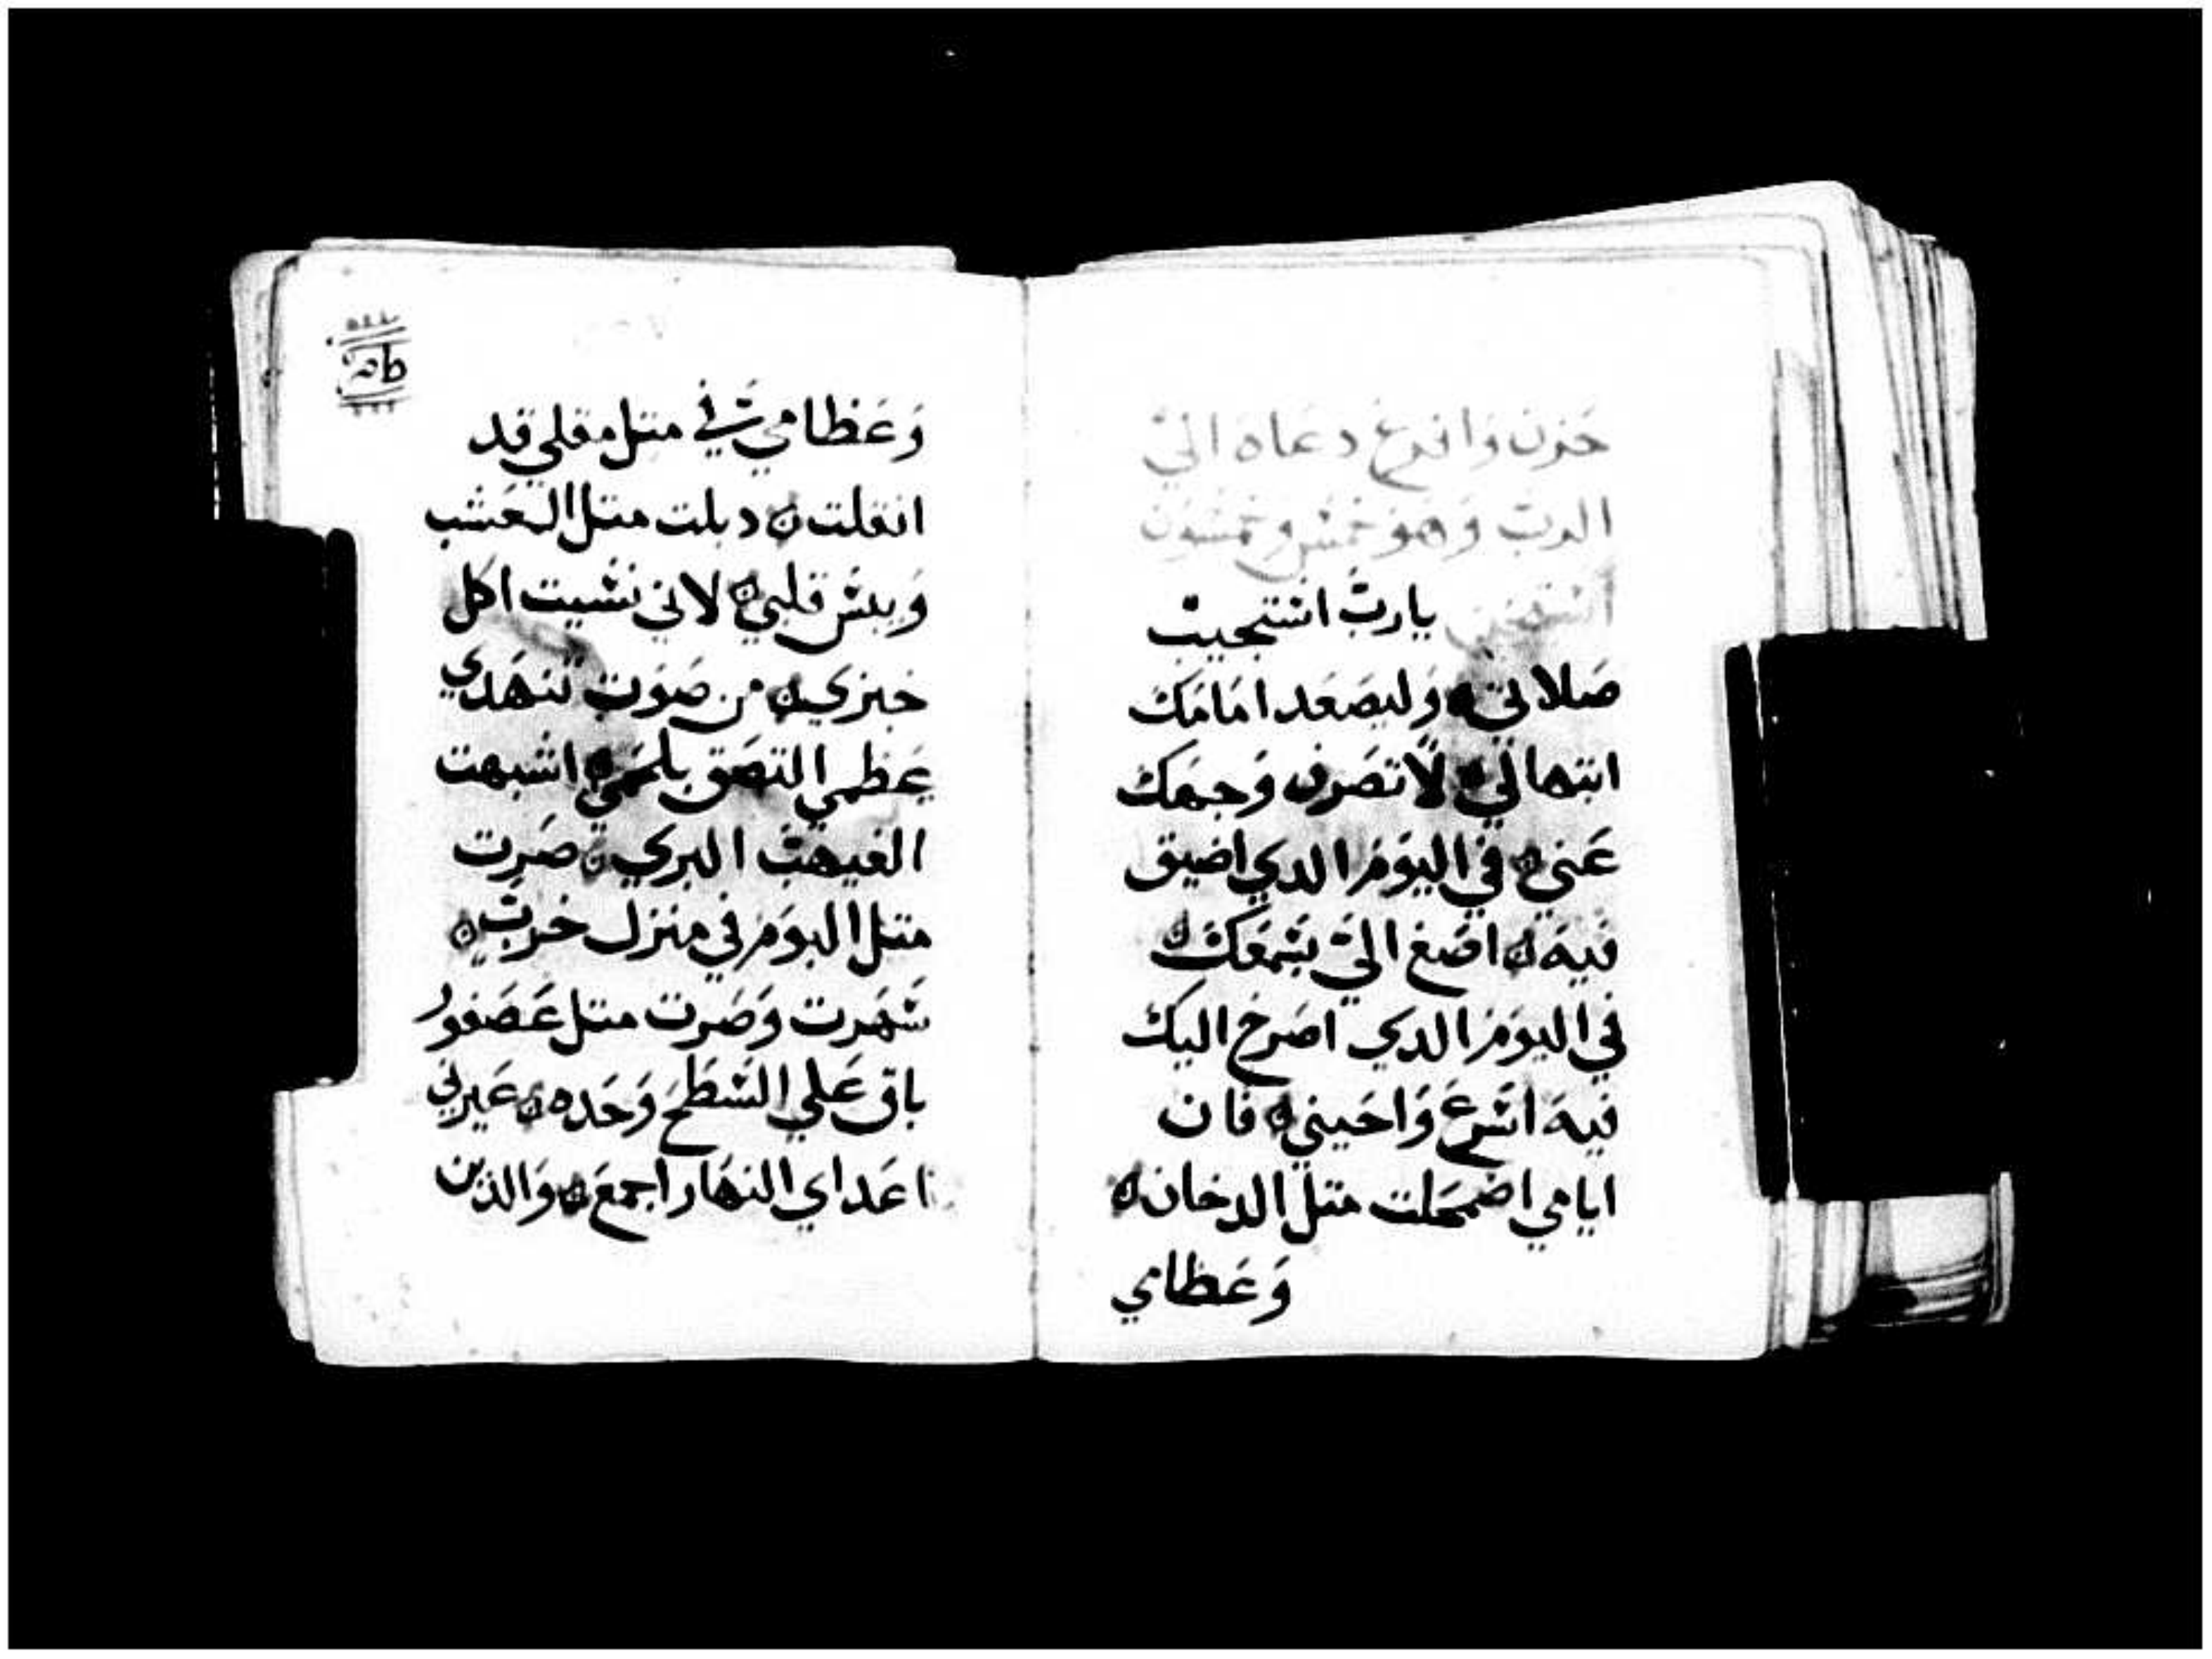 حزن وافرغ دعاه الي
الرب وهو خمس وخمسون
يارب استجيب
صلاتي ه وليصعد امامك
ابتهالي ه لا تصرف وجهك
عني ه في اليوم الدي اضيق
فيه ه اصغ الي بسمعك ه
في اليوم الدي اصرخ اليك
فيه اسرع واحيني ه فان
ايامي اضمحلت متل الدخان ه
وعظامي
وعظامي في متل مقلي قد
انقلت ه دبلت متل العشب
ويبس قلبي ه لاني نسيت اكل
خبزي ه من صوت تنهدي
عظمي التصق بلحمي ه اشبهت
الغيهب البري ه صرت
متل البوم في منزل خرب ه
سهرت وصرت متل عصفور
باق علي السطح وحده ه عيرني
اعداي النهار اجمع ه والذين